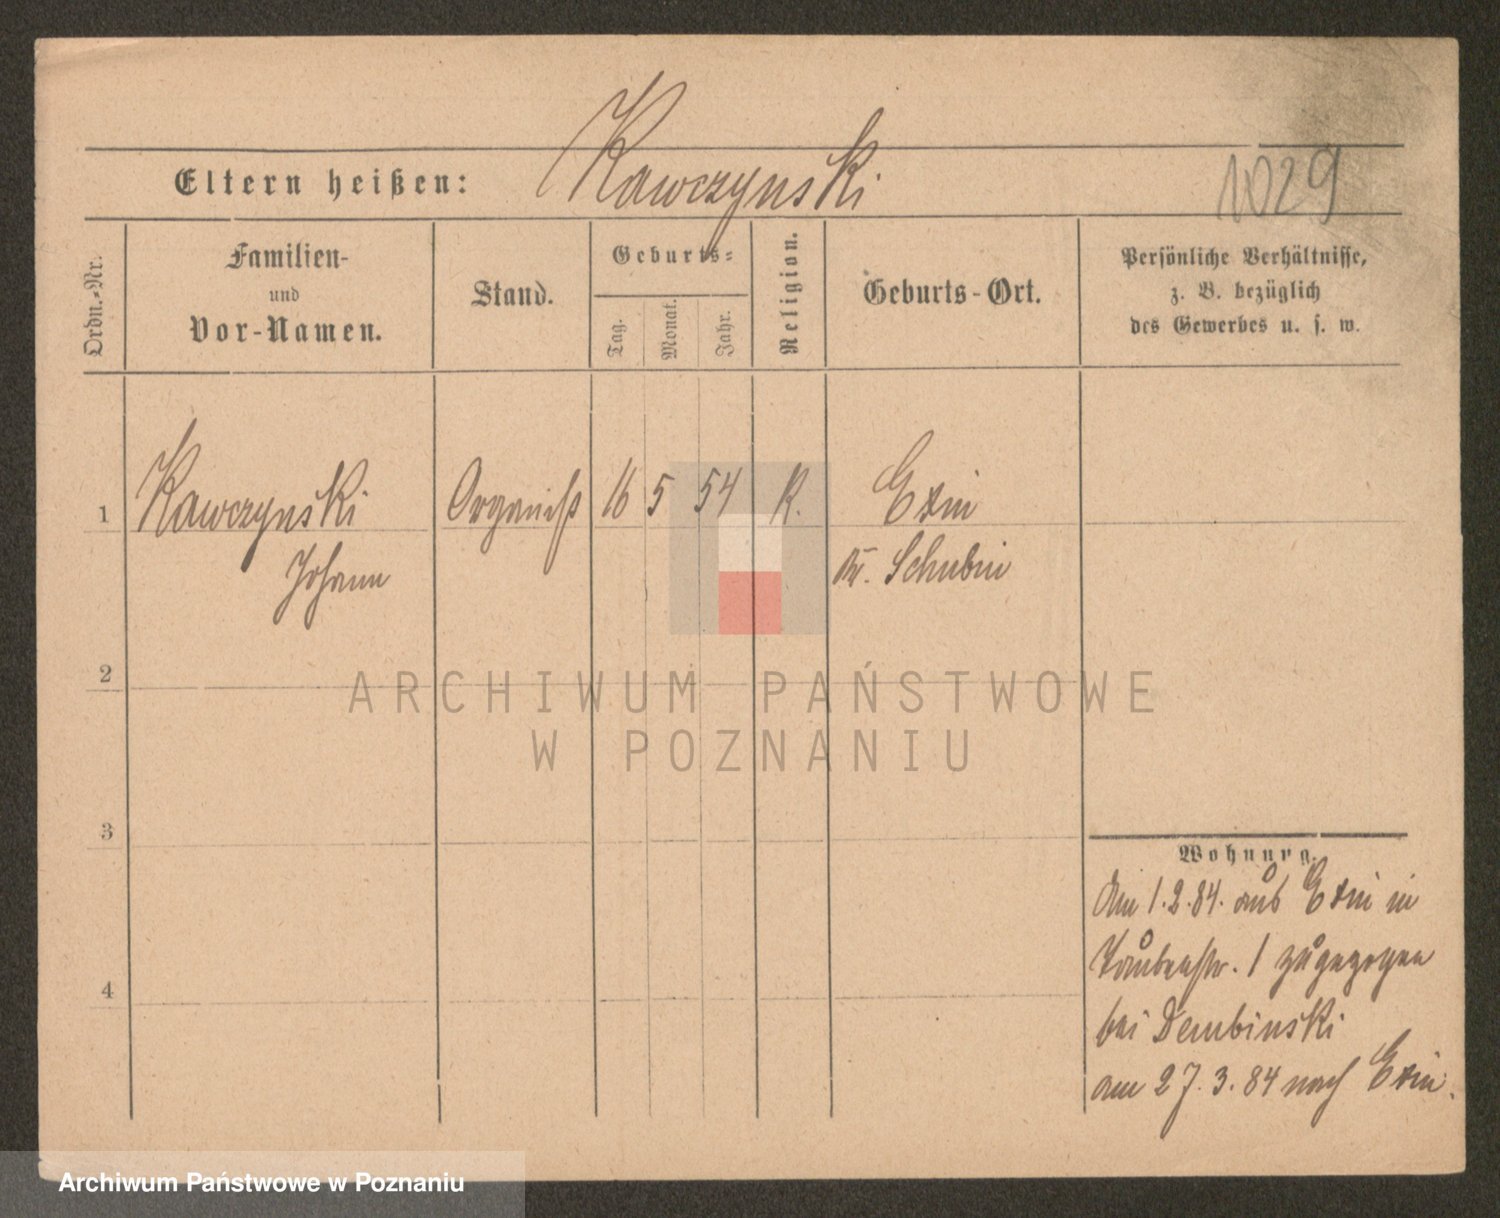 Kawczynski
Eltern heißen:
1029
Ordn.-Nr.
Familien-
und
Vor-Namen.
Stand.
Geburts-
Tag.
Monat.
Jahr.
Religion.
Geburts-Ort.
Persönliche Verhältnisse,
z. B. bezüglich
des Gewerbes u. s. w.
1 Kawczynski Organist 16 5 54 K. Exin
Johann Kr. Schubin
2
ARCHIWUM PAŃSTWOWE
W POZNANIU
3
Wohnung.
Am 1.2.84. aus Exin in
Taubenstr. 1 zugezogen
4
bei Dembinski
am 27.3.84 nach Exin.
Archiwum Państwowe w Poznaniu